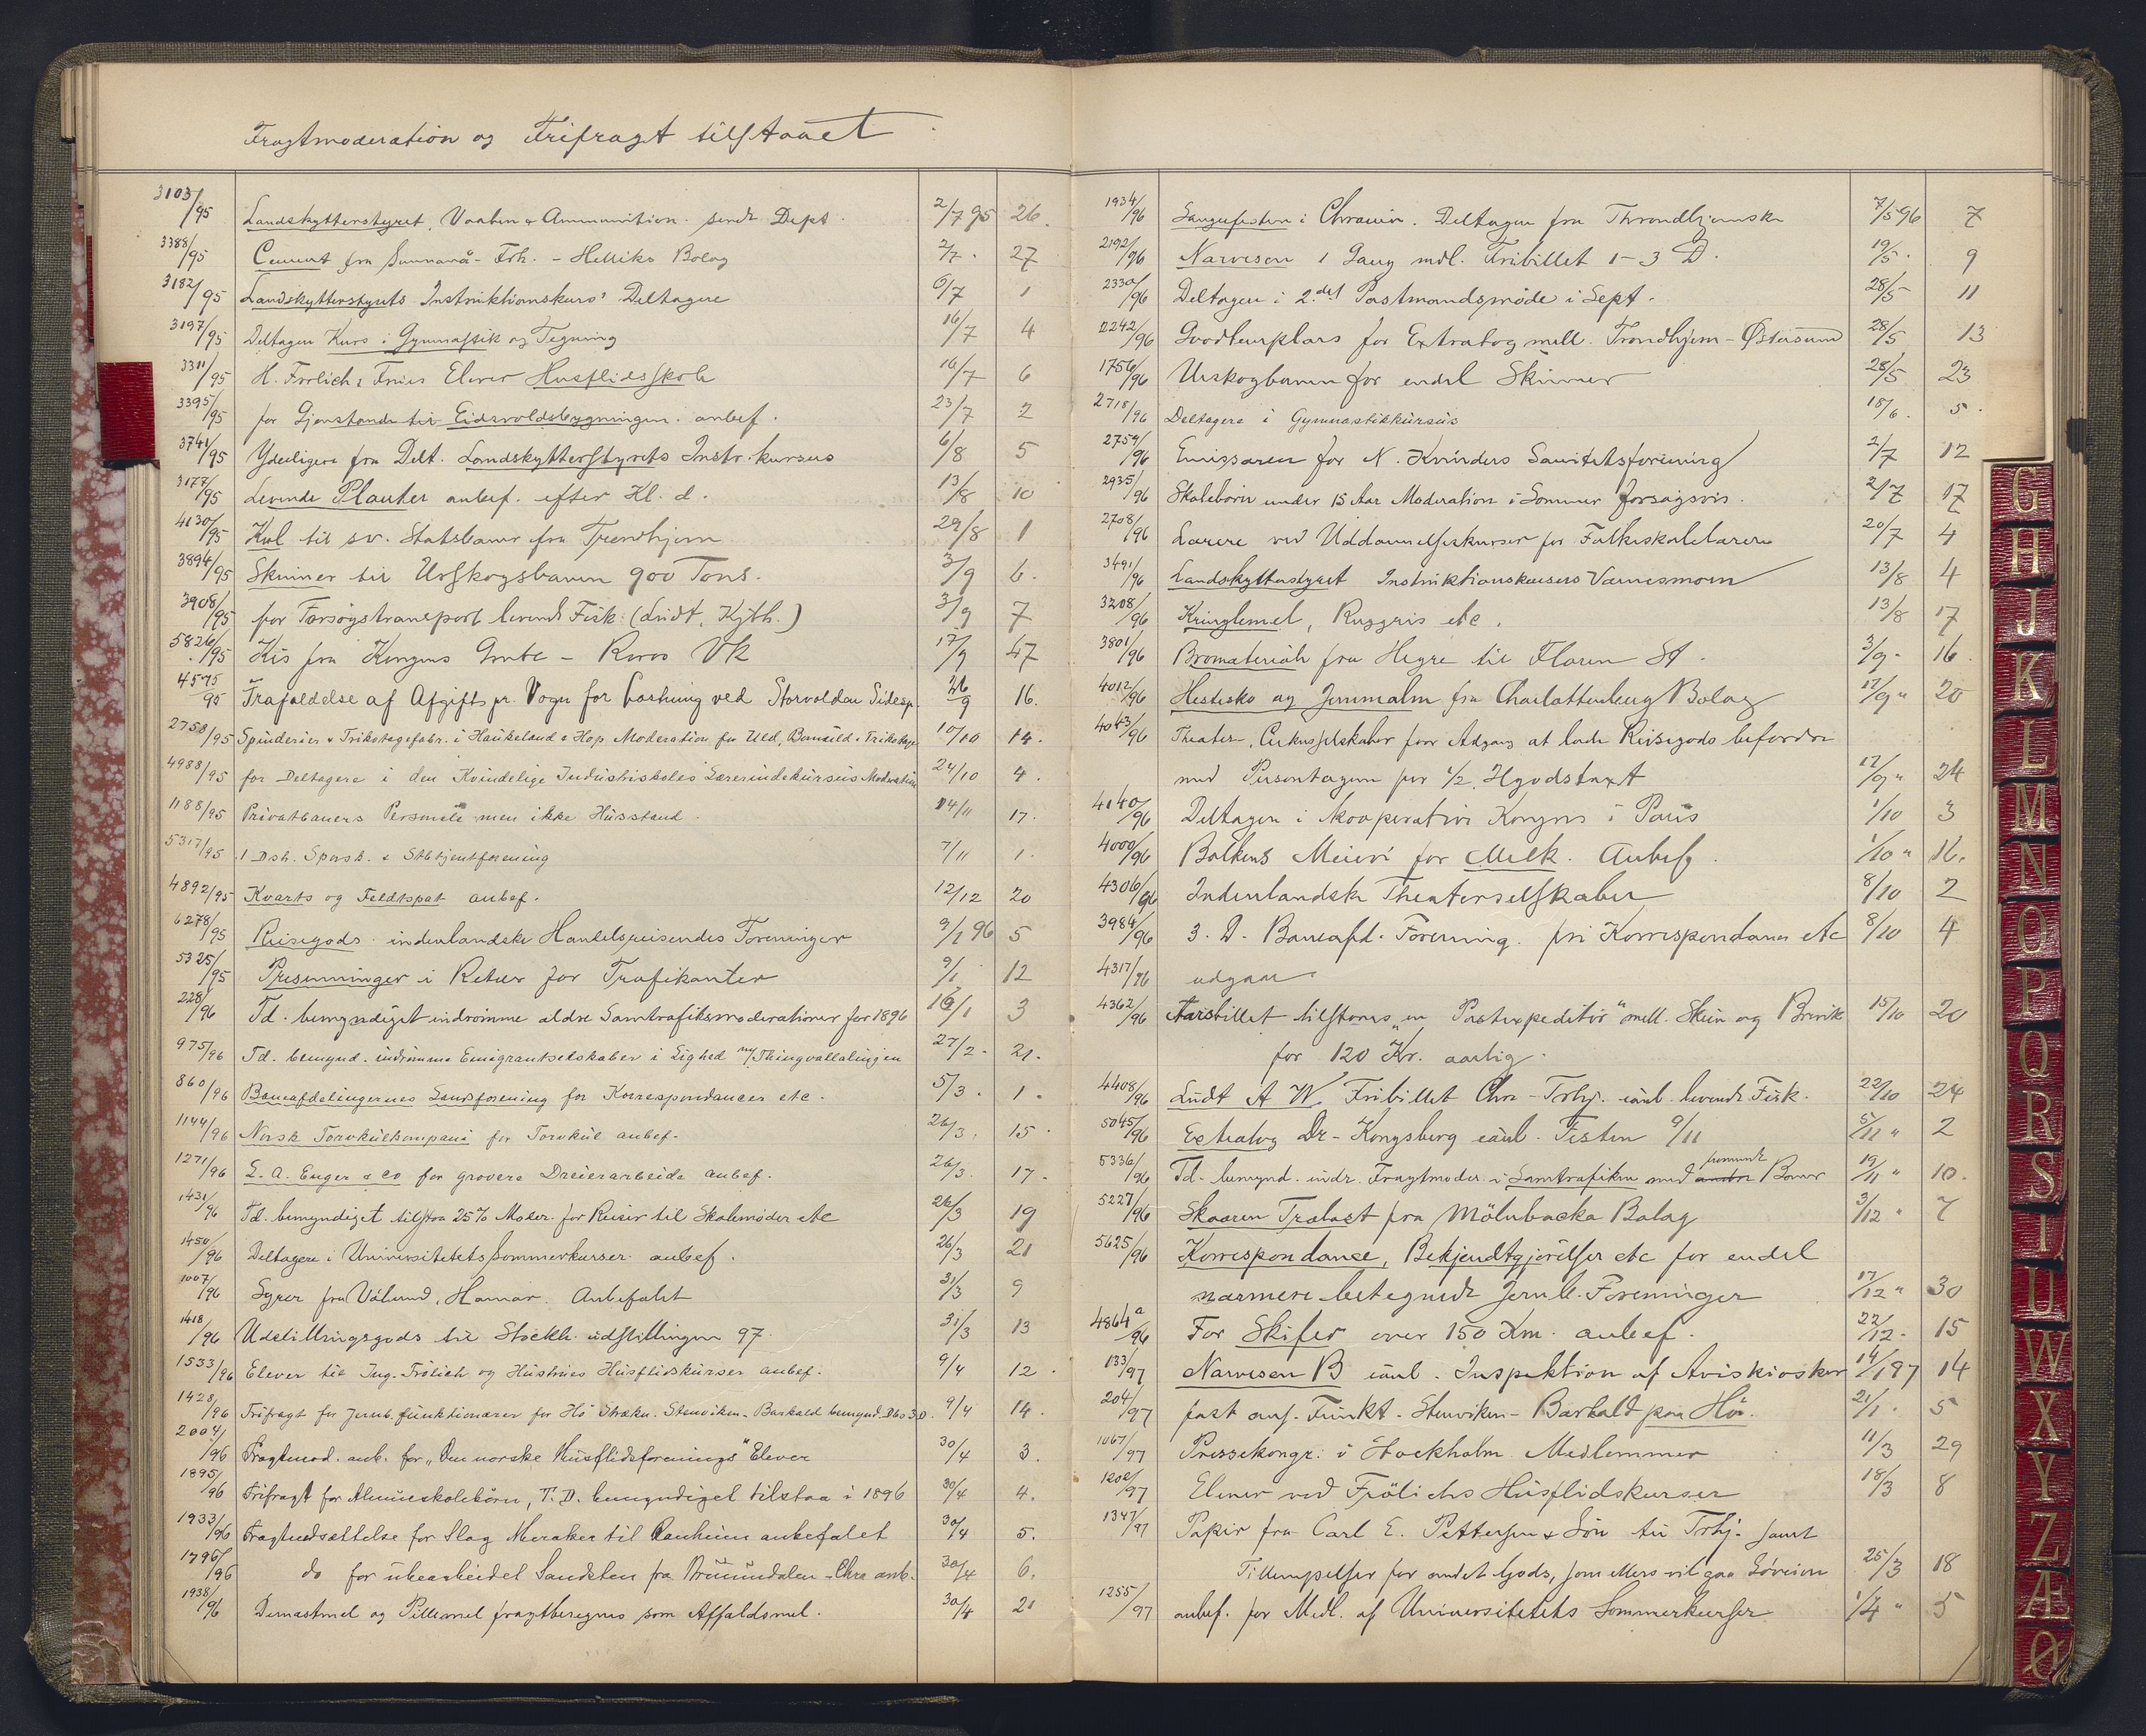 Fragtmoderation og Frifragt tilstaaet
3103/95 Landskytterstyret, Vaaben & Ammunition. sendt Dept. 2/7 95 26.
3388/95 Cement fra Sunnanå - Frh. - Hellika Bolag 2/7. 27
3182/95 Landskytterstyrets Instruktionskurs' Deltagere 6/7 1
3197/95 Deltagere Kurs i Gymnastik og Tegning 16/7 4
3311/95 H. Frølich & Frues Elever Husflidsskole 16/7 6
3395/95 for Gjenstande til Eidsvoldsbygningen. anbef. 23/7 2
3741/95 Yderligere fra Delt. Landskytterstyrets Instr. kursus 6/8 5
3177/95 Levende Planter anbef. efter Kl. d. 13/8 10
4130/95 Kul til sv. Statsbaner fra Trondhjem 29/8 1
3894/95 Skinner til Urskogsbanen 900 Tons. 3/9 6.
3908/95 for Forsøgstransport levende Fisk (Lüdt, Kjbh.) 3/9 7
5826/95 Kis fra Kongens Grube - Røros Vk 17/9 47
4575/95 Frafaldelse af Afgift pr. Vogn for Losning ved Storvolden Sidesp. 26/9 16.
2758/95 Spinderier & Trikotagefabr. i Haukeland & Hop Moderation for Uld, Bomuld & Trikotage 10/10 14.
4988/95 for Deltagere i den Kvindelige Industriskoles Lærerindekursus Moderation 24/10 4.
1188/95 Privatbaners Personale men ikke Husstand. 14/11 17.
5317/95 1 Dsh. Spareh. & Stbtjentforening 7/11 1.
4892/95 Kvarts og Feldtspat anbef. 12/12 20
6278/95 Reisegods indenlandske Handelsreisendes Foreninger 9/1 96 5
5325/95 Presenninger i Retur for Trafikanter 9/1 12
228/96 Td. bemyndiget indrømme ældre Samtrafiksmoderationer for 1896 16/1 3
975/96 Td. bemynd. indrømme Emigrantselskaber i Lighed m/ Thingvallalinjen 27/2. 21.
860/96 Baneafdelingernes Landsforening for Korrespondancer etc. 5/3. 1.
1144/96 Norsk Torvkulkompani for Torvkul anbef. 26/3. 15.
1271/96 L. A. Enger & Co for grovere Dreierarbeide anbef. 26/3. 17.
1431/96 Td. bemyndiget tilstaa 25% Moder. for Reiser til Skolemøder etc 26/3 19
1450/96 Deltagere i Universitetets Sommerkurser anbef. 26/3 21
1007/96 Syrer fra Vålund, Hamar. Anbefalet 31/3 9
1418/96 Udstillingsgods til Stockh. udstillingen 97. 31/3 13
1533/96 Elever til Ing. Frölich og Hustrues Husflidskurser anbef. 9/4 12.
1428/96 Frifragt for Jernb. funktionærer for Hö Strækn. Stenviken - Barkald bemynd. Dbs 3 D. 9/4 14
2004/96 Fragtmod. anb. for "Den norske Husflidsforenings" Elever 30/4 3.
1895/96 Frifragt for Almueskolebörn, T. D. bemyndiget tilstaa i 1896 30/4 4.
1933/96 Fragtnedsættelse for Slag Meraker til Ranheim anbefalet 30/4 5.
1796/96 do for ubearbeidet Sandsten fra Brumunddalen - Chra anb. 30/4 6.
1938/96 Demastmel og Pillemel fragtberegnes som Affaldsmel. 30/4 21
1934/96 Sangerfesten i Chrania. Deltagere fra Throndhjemske 7/5 96 7
2192/96 Narvesen 1 Gang mdl. Fribillet 1-3 D. 19/5. 9
2330/96 Deltagere i 2.det Postmandsmøde i Sept. 28/5 11
2242/96 Goodtemplars for Extratog mell. Trondhjem - Østersund 28/5 13
1756/96 Urskogbanen for endel Skinner 28/5 23
2718/96 Deltagere i Gymnastikkursus 18/6. 5.
2754/96 Emissæren for N. Kvinders Sanitetsforening 2/7 12
2935/96 Skolebørn under 15 Aar Moderation i Sommer forsøgsvis. 2/7 17
2708/96 Lærere ved Uddannelseskurser for Folkeskolelærere 20/7 4
3491/96 Landskytterstyret Instruktionskursus Værnesmoen 13/8 4
3208/96 Kringlemel, Ruggris etc. 13/8 17
3801/96 Bromateriale fra Hegre til Floren St. 3/9. 16.
4012/96 Hestesko og Jernmalm fra Charlottenberg Bolag 17/9 " 20
4043/96 Theater-, Cirkusselskaber faar Adgang at lade Reisegods befordre
med Persontogene per 1/2 Ilgodstaxt 17/9 " 24
4140/96 Deltagere i kooperativ Kongres i Paris 1/10 3
4000/96 Balkens Meieri for Melk. Anbef. 1/10 " 16.
4306/96 Indenlandske Theaterselskaber 8/10 2
3984/96 3. D. Baneafd. Forening. fri Korrespondance etc 8/10 4
4317/96 udgaar
4362/96 Aarsbillet tilstaaes "en Postexpeditør" mell. Skien og Brevik 15/10 20
for 120 Kr. aarlig.
4408/96 Lüdt A W. Fribillet Chra - Trhj. anl. levende Fisk. 22/10 24
5045/96 Extratog Dr - Kongsberg anl. Festen 9/11 5/11 " 2
5336/96 Td. bemynd. indr. Fragtmoder. i Samtrafiken med fremmede andre Baner 19/11 " 10.
5227/96 Skaaren Trælast fra Mölnbacka Bolag 3/12 " 7
5625/96 Korrespondance, Bekjendtgjörelser etc for endel
nærmere betegnede Jernb. Foreninger 17/12 " 30
4864a/96 For Skifer over 150 Km. anbef. 22/12. 15
133/97 Narvesen B anl. Inspektion af Aviskiosker 14/1 97 14
204/97 fast ans. Funkt. Stenviken - Barkald paa Hö. 21/1. 5
1067/97 Pressekongr. i Stockholm Medlemmer 11/3 29
1202/97 Elever ved Frölichs Husflidskurser 18/3 8
1347/97 Papir fra Carl E. Pettersen & Søn til Trhj. samt
Tillempelser for andet Gods, som ellers vil gaa Søveien 25/3 18
1255/97 anbef. for Medl. af Universitetets Sommerkurser 1/4 " 5
G
H
J
K
L
M
N
O
P
Q
R
S
T
U
W
X
Y
Z
Æ
Ø